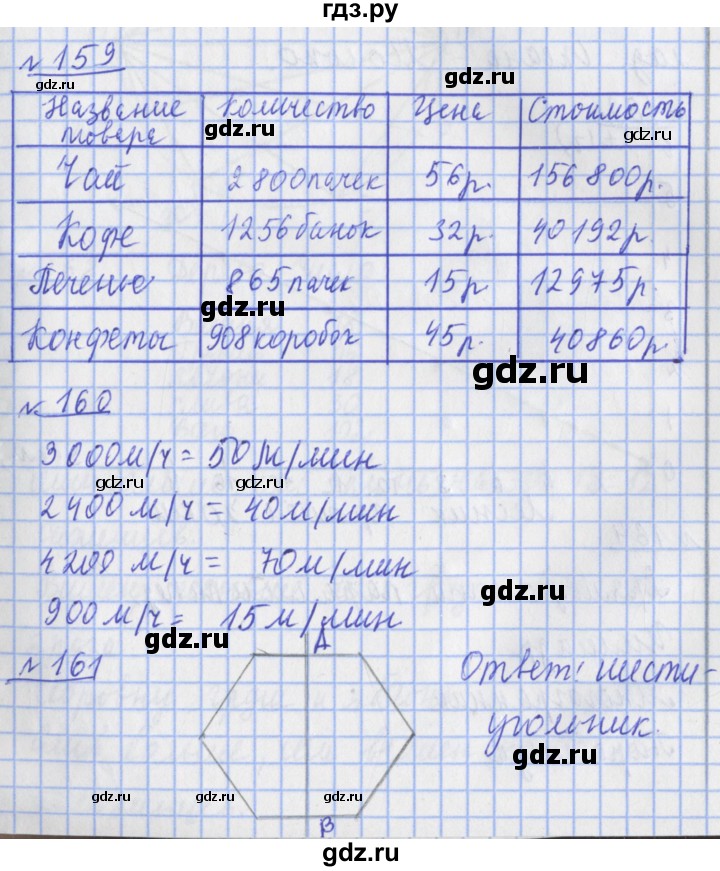 гдз.ру
№ 159
gdz.ru
Название товара Количество Цена Стоимость
gdz.ru
gdz.ru
gdz.ru
Чай 2800пачек 56р. 156 800р.
Кофе 1256банок 32р. 40192р.
Печенье 865пачек 15р 12975р.
gdz.ru
Конфеты 908коробок 45р. 40860р
gdz.ru
№ 160
3000м/ч = 50м/мин
gdz.ru
gdz.ru
2400м/ч = 40м/мин
4200 м/ч = 70м/мин
gdz.ru
900м/ч = 15м/мин
gdz.ru
№ 161
A
Ответ: шести-
угольник.
gdz.ru
gdz.ru
gdz.ru
B
gdz.ru